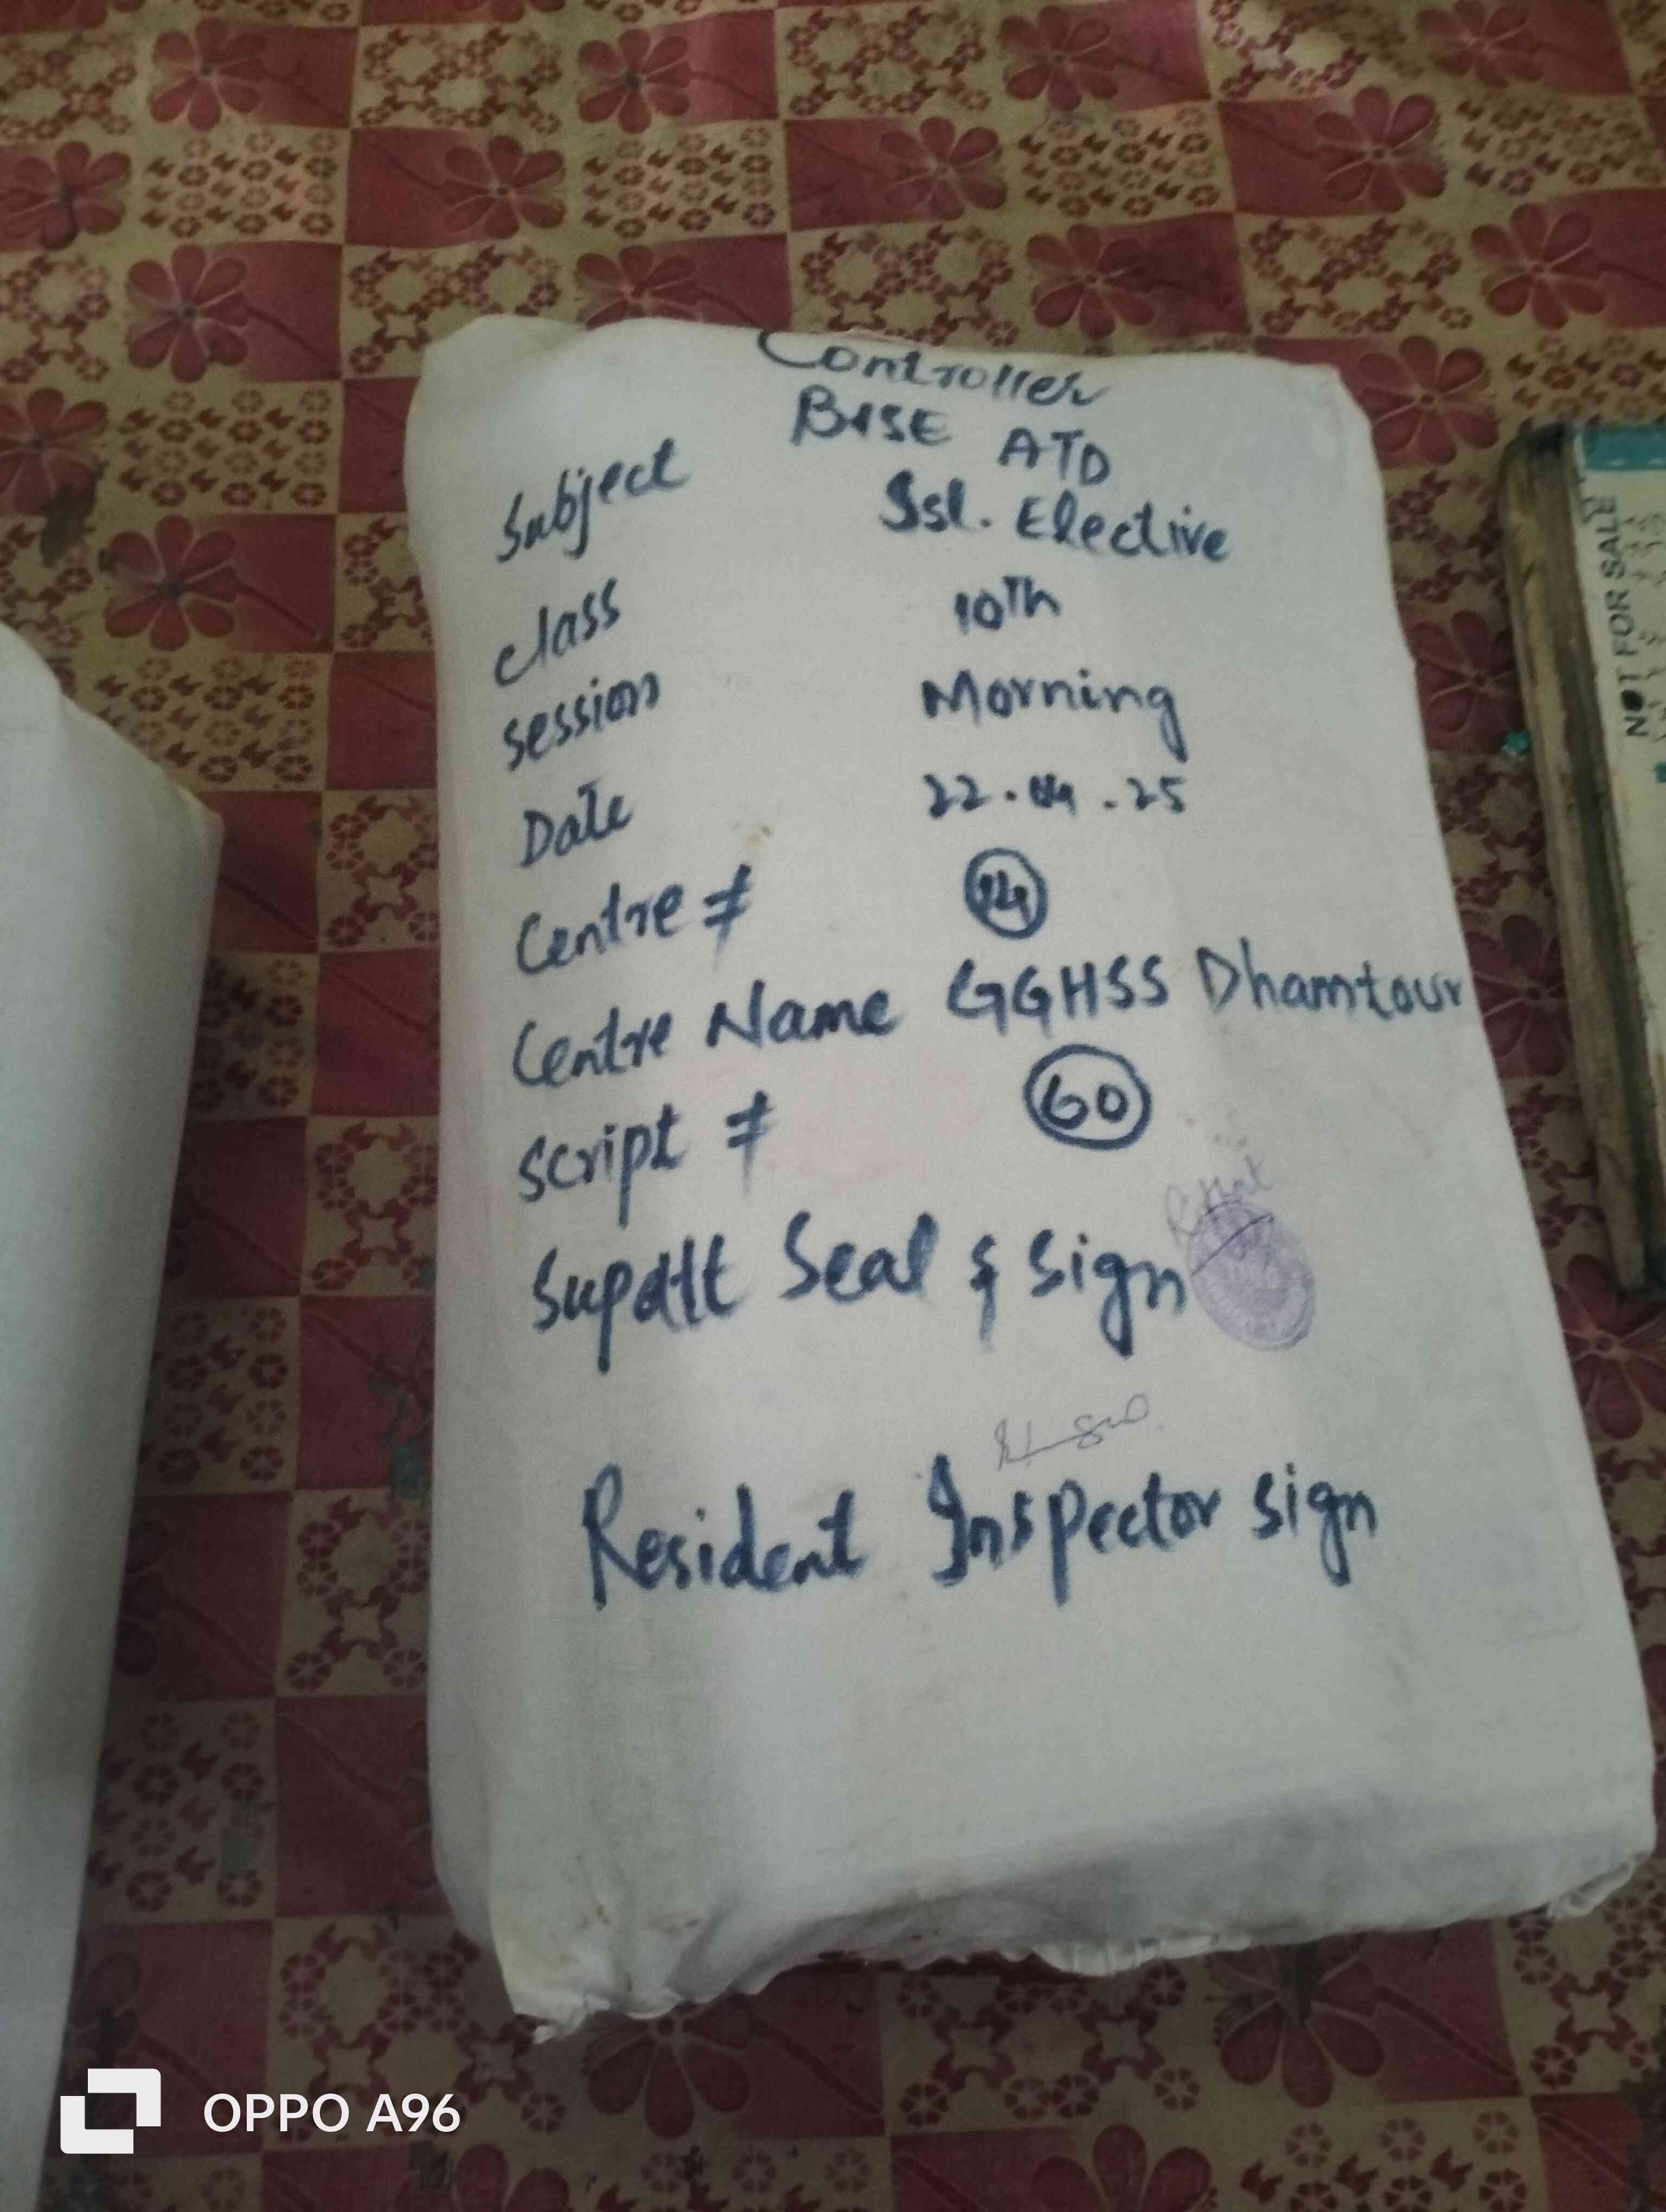 Controller
BISE ATD
Subject Isl. Elective
class 10Th
session Morning
Date 22.04.25
Centre # 14
Centre Name GGHSS Dhamtour
Script # 60
Supdtt Seal & Sign
Resident Inspector sign
NOT FOR SALE
OPPO A96